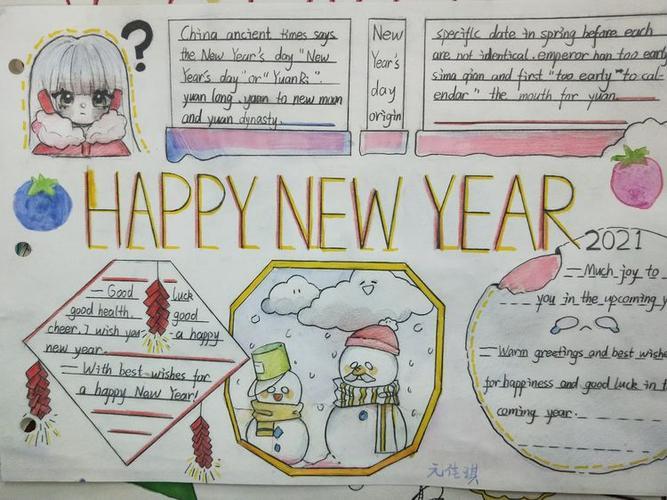 ?
China ancient times says
the New Year's day "New
Year's day" or "YuanRi".
yuan long, yuan to new moon
and yuan dynasty.
New
Year's
day
origin
specific date in spring before each
are not identical. emperor han too early
sima qian and first "too early" to cal-
endar" the mouth for yuan
HAPPY NEW YEAR
2021
Good luck
good health, good
cheer. I wish you a happy
new year.
With best wishes for
a happy New Year!
Much joy to
you in the upcoming
Warm greetings and best wishe
for happiness and good luck in t
coming year.
元佳琪